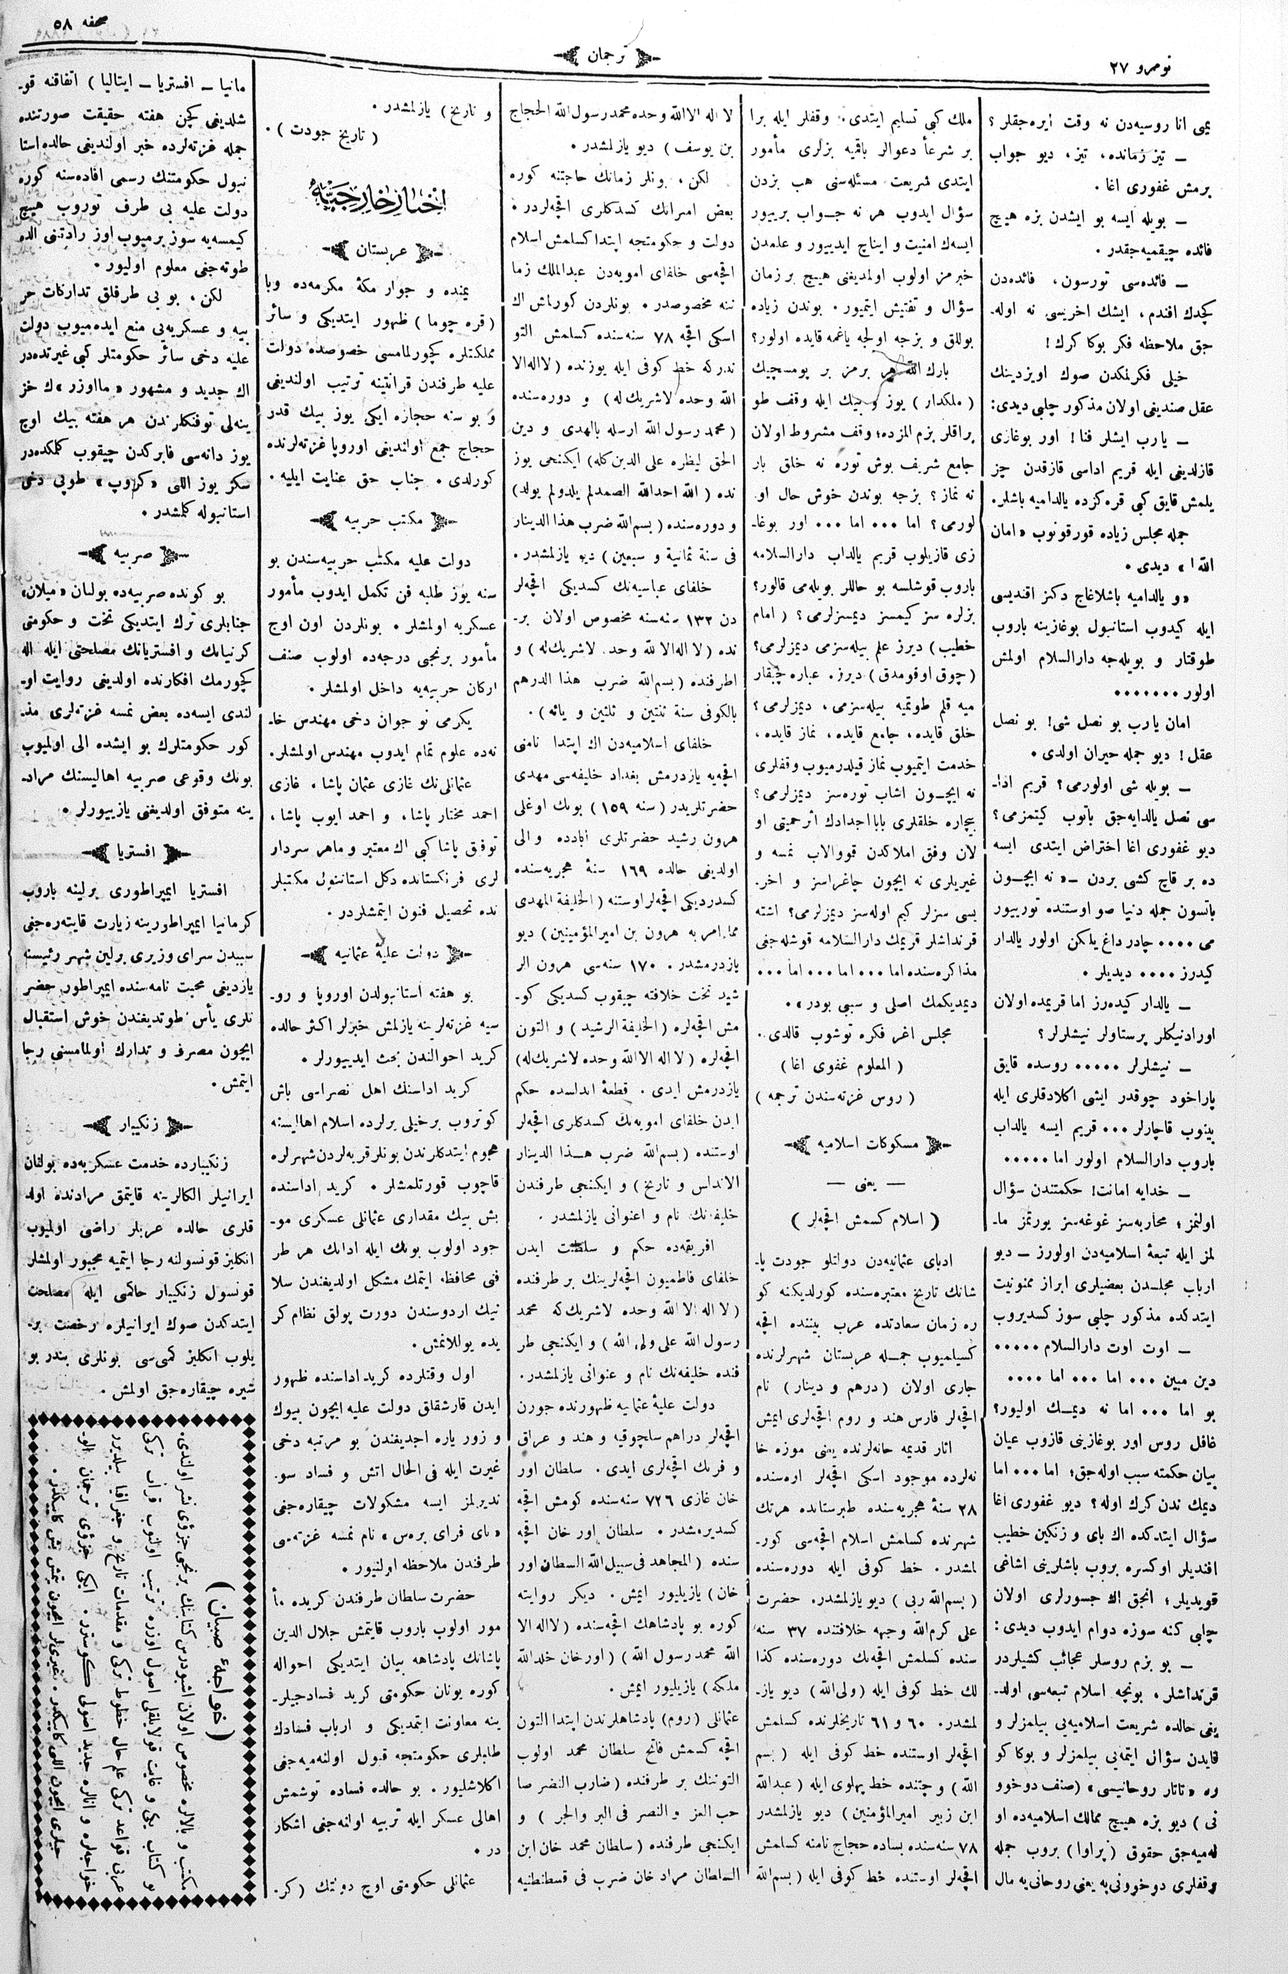 صحفه ٥٨
ترجمان
نومرو ٢٧
يمى انا روسيه‌دن نه وقت ايره‌جقلر؟
ــ تيز زمانده، تيز، ديو جواب
برمش غفورى اغا.
ــ بويله ايسه بو ايشدن بزه هيچ
فائده چيقميه‌جقدر.
ــ فائده‌سى تورسون، فائده‌دن
كچدك افندم، ايشك اخريسى نه اوله‌
جق ملاحظه فكر بوكا كرك!
خيلى فكرلمكدن صوك اويزدينك
عقل صنديغى اولان مذكور چلبى ديدى:
ــ يارب ايشلر فنا! اور بوغازى
قازلديغى ايله قريم اداسى قازقدن چز
يلمش قايق كبى قره كزده يالداميه باشلر.
جمله مجلس زياده قورقونوب «امان
الله!» ديدى.
«و يالداميه باشلاغاج دكز اقنديسى
ايله كيدوب استانبول بوغازينه باروب
طوقتار و بويله‌جه دارالسلام اولمش
اولور.......
امان يارب بو نصل شى! بو نصل
عقل! ديو جمله حيران اولدى.
ــ بويله شى اولورمى؟ قريم ادا‌
سى نصل يالدايه‌جق باتوب كيتمزمى؟
ديو غفورى اغا اختراض ايتدى ايسه
ده بر قاچ كشى بردن ــ «نه ايچون
باتسون جمله دنيا صو اوستنده توريبور
مى.... چادر داغ يلكن اولور يالدار
كيدرز .... ديديلر.
ــ يالدار كيده‌رز اما قريمده اولان
اورادنيكلر پرستاولر نيشلرلر؟
ــ نيشلرلر ..... روسده قايق
پاراخود چوقدر ايشى اكلادقلرى ايله
بينوب قاچارلر ... قريم ايسه يالداب
باروب دارالسلام اولور اما .....
ــ خدايه امانت! حكمتندن سؤال
اولنمز؛ محاربه‌سز غوغه‌سز يورتمز ما‌
لمز ايله تبعۀ اسلاميه‌دن اولورز ــ ديو
ارباب مجلسدن بعضيلرى ابراز ممنونيت
ايتدكده مذكور چلبى سوز كسديروب
ــ اوت اوت دارالسلام .....
دين مبين ... اما ... اما ....
بو اما ... اما نه ديمسك اوليور؟
غافل روس اور بوغازينى قازوب عيان
بيان حكمته سبب اوله‌جق؛ اما ... اما
ديمك ندن كرك اوله؟ ديو غفورى اغا
سؤال ايتدكده اك باى و زنكين خطيب
افنديلر اوكسره بروب باشلرينى اشاغى
قويديلر؛ انجق اك جسورلرى اولان
چلبى كنه سوزه دوام ايدوب ديدى:
ــ بو بزم روسلر عجائب كشيلردر
قرنداشلر، بونجه اسلام تبعه‌سى اولد‌
يغى حالده شريعت اسلاميه‌يى بيلمزلر و
قايدن سؤال ايتمه‌يى بيلمزلر و بوكا كو
ره «تاتار روحانيسى» (صنف دوخوو
نى) ديو بزه هيچ ممالك اسلاميه‌ده او
لميه‌جق حقوق (پراوا) بروب جمله
وقفلرى دوخوونى‌يه يعنى روحانى‌يه مال
ملك كبى تسليم ايتدى. وقفلر ايله برا
بر شرعاً دعوالر باقميه بزلرى مأمور
ايتدى شريعت مسئله‌سنى هپ بزدن
سؤال ايدوب هر نه جواب بريبور
ايسه‌ك امنيت و ايناج ايديبور و علمدن
خبرمز اولوب اولمديغنى هيچ بر زمان
سؤال و تفتيش ايتميور. بوندن زياده
بوللق و بزجه اولجه ياغمه قايده اولور؟
بارك الله هر برمز بر پومسچيك
(ملكدار) يوز و بيك ايله وقف طو
پراقلر بزم المزده؛ وقف مشروط اولان
جامع شريف بوش توره نه خلق بار
نه نماز؟ بزجه بوندن خوش حال او.
لورمى؟ اما ... اما ... اور بوغا‌
زى قازيلوب قريم يالداب دارالسلامه
باروب قوشلسه بو حاللر بويله‌مى قالور؟
بزلره سز كيمسز ديمسزلرمى؟ (امام
خطيب) ديرز علم بيله‌سزمى ديمزلرمى؟
(چوق اوقومدق) ديرز. عباره چيقار
ميه قلم طوتميه بيله‌سزمى، ديمزلرمى؟
خلق قايده، جامع قايده، نماز قايده،
خدمت ايتميوب نماز قيلدرميوب وقفلرى
نه ايچون اشاب توره‌سز ديمزلرمى؟
بيچاره خلقلرى بابا اجدادك اترحميتى او
لان وقف املاكدن قووالاب نمسه و
غيريلرى نه ايچون چاغراسز و اخر.
بسى سزلر كيم اوله‌سز ديمزلرمى؟ اشته
قرنداشلر قريمك دارالسلامه قوشله‌جغى
مذاكره‌سنده اما ... اما ... اما ...
ديمديكمك اصلى و سببى بودر».
مجلس اغر فكره توشوب قالدى.
(المعلوم غفوى اغا)
(روس غزته‌سندن ترجمه)
مسكوكات اسلاميه
ــ يعنى ــ
(اسلام كسمش اقچه‌لر)
ادباى عثمانيه‌دن دولتلو جودت پا‌
شانك تاريخ معتبره‌سنده كورلديكنه كو
ره زمان سعادتده عرب بيننده اقچه
كسيلميوب جمله عربستان شهرلرنده
جارى اولان (درهم و دينار) نام
اقچه‌لر فارس هند و روم اقچه‌لرى ايمش
اثار قديمه خانه‌لرنده يعنى موزه خا
نه‌لرده موجود اسكى اقچه‌لر اره‌سنده
٢٨ سنۀ هجريه‌سنده طبرستانده هرتك
شهرنده كسلمش اسلام اقچه‌سى كور‌
لمشدر. خط كوفى ايله دوره‌سنده
(بسم الله ربى) ديو يازلمشدر. حضرت
على كرم الله وجهه خلافتنده ٣٧ سنه‌
سنده كسلمش اقچه‌نك دوره‌سنده كذا
لك خط كوفى ايله (ولى الله) ديو ياز‌
لمشدر. ٦٠ و ٦١ تاريخلرنده كسلمش
اقچه‌لر اوستنده خط كوفى ايله (بسم
الله) و جتنده خط پهلوى ايله (عبدالله
ابن زبير اميرالمؤمنين) ديو يازلمشدر
٧٨ سنه‌سنده بساده حجاج نامنه كسلمش
اقچه‌لر اوستنده خط كوفى ايله (بسم الله
لا اله الا الله وحده محمد رسول الله الحجاج
بن يوسف) ديو يازلمشدر.
لكن، ونلر زمانك حاجتنه كوره
بعض امرانك كسدكلرى اقچه‌لردر.
دولت و حكومتجه ابتدا كسلمش اسلام
اقچه‌سى خلفاى امويه‌دن عبدالملك زما
ننه مخصوصدر. بونلردن كورلمش اك
اسكى اقچه ٧٨ سنه‌سنده كسلمش التو
ندر كه خط كوفى ايله يوزنده (لا اله الا
الله وحده لا شريك له) و دوره‌سنده
(محمد رسول الله ارسله بالهدى و دين
الحق ليظره على الدين كله) ايكنجى يوز
نده (الله احدالله الصمد لم يلد ولم يولد)
و دوره‌سنده (بسم الله ضرب هذا الدينار
فى سنة ثمانية و سبعين) ديو يازلمشدر.
خلفاى عباسيه‌نك كسديكى اقچه‌لر
دن ١٣٢ سنه‌سنه مخصوص اولان بر‌
نده (لا اله الا لله وحد. لا شريك له) و
اطرفنده (بسم الله ضرب هذا الدرهم
بالكوفى سنة ثنتين و ثلثين و يائه).
خلفاى اسلاميه‌دن اك ابتدا نامنى
اقچه‌يه يازدرمش بغداد خليفه‌سى مهدى
حضرتلريدر (سنه ١٥٩) بونك اوغلى
هرون رشيد حضرتلرى اباده و الى
اولديغى حالده ١٦٩ سنۀ هجريه‌سنده
كسدرديكى اقچه‌لر اوستنه (الخليفة المهدى
مما امر به هرون بن اميرالمؤمنين) ديو
يازدرمشدر. ١٧٠ سنه‌سى هرون الر
شيد تخت خلافته چيقوب كسديكى كو‌
مش اقچه‌لره (الخليفة الرشيد) و التون
اقچه‌لره (لا اله الا الله وحده لا شريك له)
يازدرمش ايدى. قطعۀ اندلسده حكم
ايدن خلفاى امويه‌نك كسدكلرى اقچه‌لر
اوستنده (بسم الله ضرب هذا الدينار
الاندلس و تاريخ) و ايكنجى طرفندن
خليفه‌نك نام و اعنوانى يازلمشدر.
افريقه‌ده حكم و سلطنت ايدن
خلفاى فاطميون اقچه‌لرينك بر طرفنده
(لا اله الا الله وحده لا شريك له محمد
رسول الله على ولى الله) و ايكنجى طر
فنده خليفه‌نك نام و عنوانى يازلمشدر.
دولت عليۀ عثمانيه ظهورنده جورن
اقچه‌لر دراهم سلچوقيه و هند و عراق
و فرنك اقچه‌لرى ايدى. سلطان اور
خان غازى ٧٢٦ سنه‌سنده كومش اقچه
كسديرمشدر. سلطان اورخان اقچه
سنده (المجاهد فى سبيل الله السطان اور
خان) يازيليور ايمش. ديكر روايته
كوره بو پادشاهك اقچه‌سنده (لا اله الا
الله محمد رسول الله) (اورخان خلد الله
ملكه) يازيليور ايمش.
عثمانلى (روم) پادشاهلرندن ابتدا التون
اقچه كسمش فاتح سلطان محمد اولوب
التوننك بر طرفنده (ضارب النضر صا
حب العز و النصر فى البر والبحر) و
ايكنجى طرفنده (سلطان محمد خان ابن
السلطان مراد خان ضرب فى قسطنطنيه
و تاريخ) يازلمشدر.
(تاريخ جودت).
اخبار خارجيّه
عربستان
يمنده و جوار مكۀ مكرمه‌ده وبا
(قره چوما) ظهور ايتديكى و سائر
مملكتلره كچورلمامسى خصوصده دولت
عليه طرفندن قرانتينه ترتيب اولنديغى
و بو سنه حجازه ايكى يوز بيك قدر
حجاج جمع اولنديغى اوروپا غزته‌لرنده
كورلدى. جناب حق عنايت ايليه.
مكتب حربيه
دولت عليه مكتب حربيه‌سندن بو
سنه يوز طلبه فن تكمل ايدوب مأمور
عسكريه اولمشلر. بونلردن اون اوچ
مأمور برنجى درجه‌ده اولوب صنف
اركان حربيه‌يه داخل اولمشلر.
يكرمى نو جوان دخى مهندس خا‌
نه‌ده علوم تمام ايدوب مهندس اولمشلر.
عثمانلى‌نك غازى عثمان پاشا، غازى
احمد مختار پاشا، و احمد ايوب پاشا،
توفق پاشا كبى اك معتبر و ماهر سردار
لرى فرنكستانده دكل استانبول مكتبلر
نده تحصيل فنون ايتمشلردر.
دولت عليۀ عثمانيه
بو هفته استانبولدن اوروپا و رو‌
سيه غزته‌لرينه يازلمش خبرلر اكثر حالده
كريد احوالندن بحث ايديبورلر.
كريد اداسنك اهل نصراسى باش
كوتروب بر خيلى برلرده اسلام اهاليسنه
هجوم ايتدكلرندن بونلر قريه‌لردن شهرلره
قاچوب قورتلمشلر. كريد اداسنده
بش بيك مقدارى عثمانلى عسكرى مو‌
جود اولوب بونك ايله ادانك هر طر
فنى محافظه ايتمك مشكل اولديغندن سلا
نيك اردوسندن دورت پولق نظام كر
يده يوللانمش.
اول وقتلرده كريد اداسنده ظهور
ايدن قارشقلق دولت عليه ايچون بيوك
و زور ياره اجديغندن بو مرتبه دخى
غيرت ايله فى الحال اتش و فساد سو‌
نديرلمز ايسه مشكولات چيقاره‌جغى
«ناى فراى پره‌س» نام نمسه غزته‌سى
طرفندن ملاحظه اولنيور.
حضرت سلطان طرفندن كريده مأ
مور اولوب باروب قايتمش جلال الدين
پاشانك پادشاهه بيان ايتديكى احواله
كوره يونان حكومتى كريد فسادجيلر‌
ينه معاونت ايتمديكى و ارباب فسادك
طابلرى حكومتجه قبول اولنه‌ميه‌جغى
اكلاشليور. بو حالده فساده توشمش
اهالى عسكر ايله تربيه اولنه‌جغى اشكار
در.
عثمانلى حكومتى اوچ دولتك (كر.
مانيا ــ افستريا ــ ايتاليا) اتفاقنه قو‌
شلديغى كچن هفته حقيقت صورتنده
جمله غزته‌لرده خبر اولنديغى حالده استا
نبول حكومتنك رسمى افاده‌سنه كوره
دولت عليه بى طرف توروب هيچ
كيمسه‌يه سوز برميوب اوز رادتنى الده
طوته‌جغى معلوم اوليور.
لكن، بو بى طرفلق تداركات حر
بيه و عسكريه‌يى منع ايده‌ميوب دولت
عليه دخى سائر حكومتلر كبى غيرتده‌در
اك جديد و مشهور «مااوزر»ك خز
ينه‌لى توفنكلرندن هر هفته بيك اوچ
يوز دانه‌سى فابركدن چيقوب كلمكده‌در
سكز يوز اللى «كروپ» طوپى دخى
استانبوله كلمشدر.
صربيه
بو كونده صربيه‌ده بولنان «ميلان»
جنابلرى ترك ايتديكى تخت و حكومتى
كرنيانك و افستريانك مصلحتى ايله اله
كچورمك افكارنده اولديغى روايت او‌
لندى ايسه‌ده بعض نمسه غزته‌لرى مذ‌
كور حكومتلرك بو ايشده الى اولميوب
بونك وقوعى صربيه اهاليسنك مراد‌
ينه متوفق اولديغنى يازيبورلر.
افستريا
افستريا ايمپراطورى برلينه باروب
كرمانيا ايمپراطورينه زيارت قايته‌ره‌جغى
سببدن سراى وزيرى برلين شهر رئيسنه
يازديغى محبت نامه‌سنده ايمپراطور حضر
تلرى يأس طوتديغندن خوش استقبال
ايچون مصرف و تدارك اولمامسنى رجا
ايتمش.
زنكيبار
زنكيبارده خدمت عسكريه‌ده بولنان
ايرانيلر الكالرينه قايتمق مرادنده اولد
قلرى حالده عربلر راضى اولميوب
انكليز قونسولنه رجا ايتميه مجبور اولمشلر
قونسول زنكيبار حاكمى ايله مصلحت
ايتدكدن صوك ايرانيلره رخصت بر.
يلوب انكليز كمى‌سى بونلرى بندر بو
شيره چيقاره‌جق اولمش.
(خواجهء صبيان)
مكتب و بالالره مخصوص اولان اشبو درس كتابنك برنجى جزؤى نشر اولندى.
بو كتاب يكى و غايت قولايلقلى اصول اوزره ترتيب اولنوب قراءت تركى
عربى قواعد تركى علم حال خطوط تركى و مقدمات تاريخ و جغرافيا بيلديرر
خواجه‌لره و اتالره جديد اصولى كوستور.